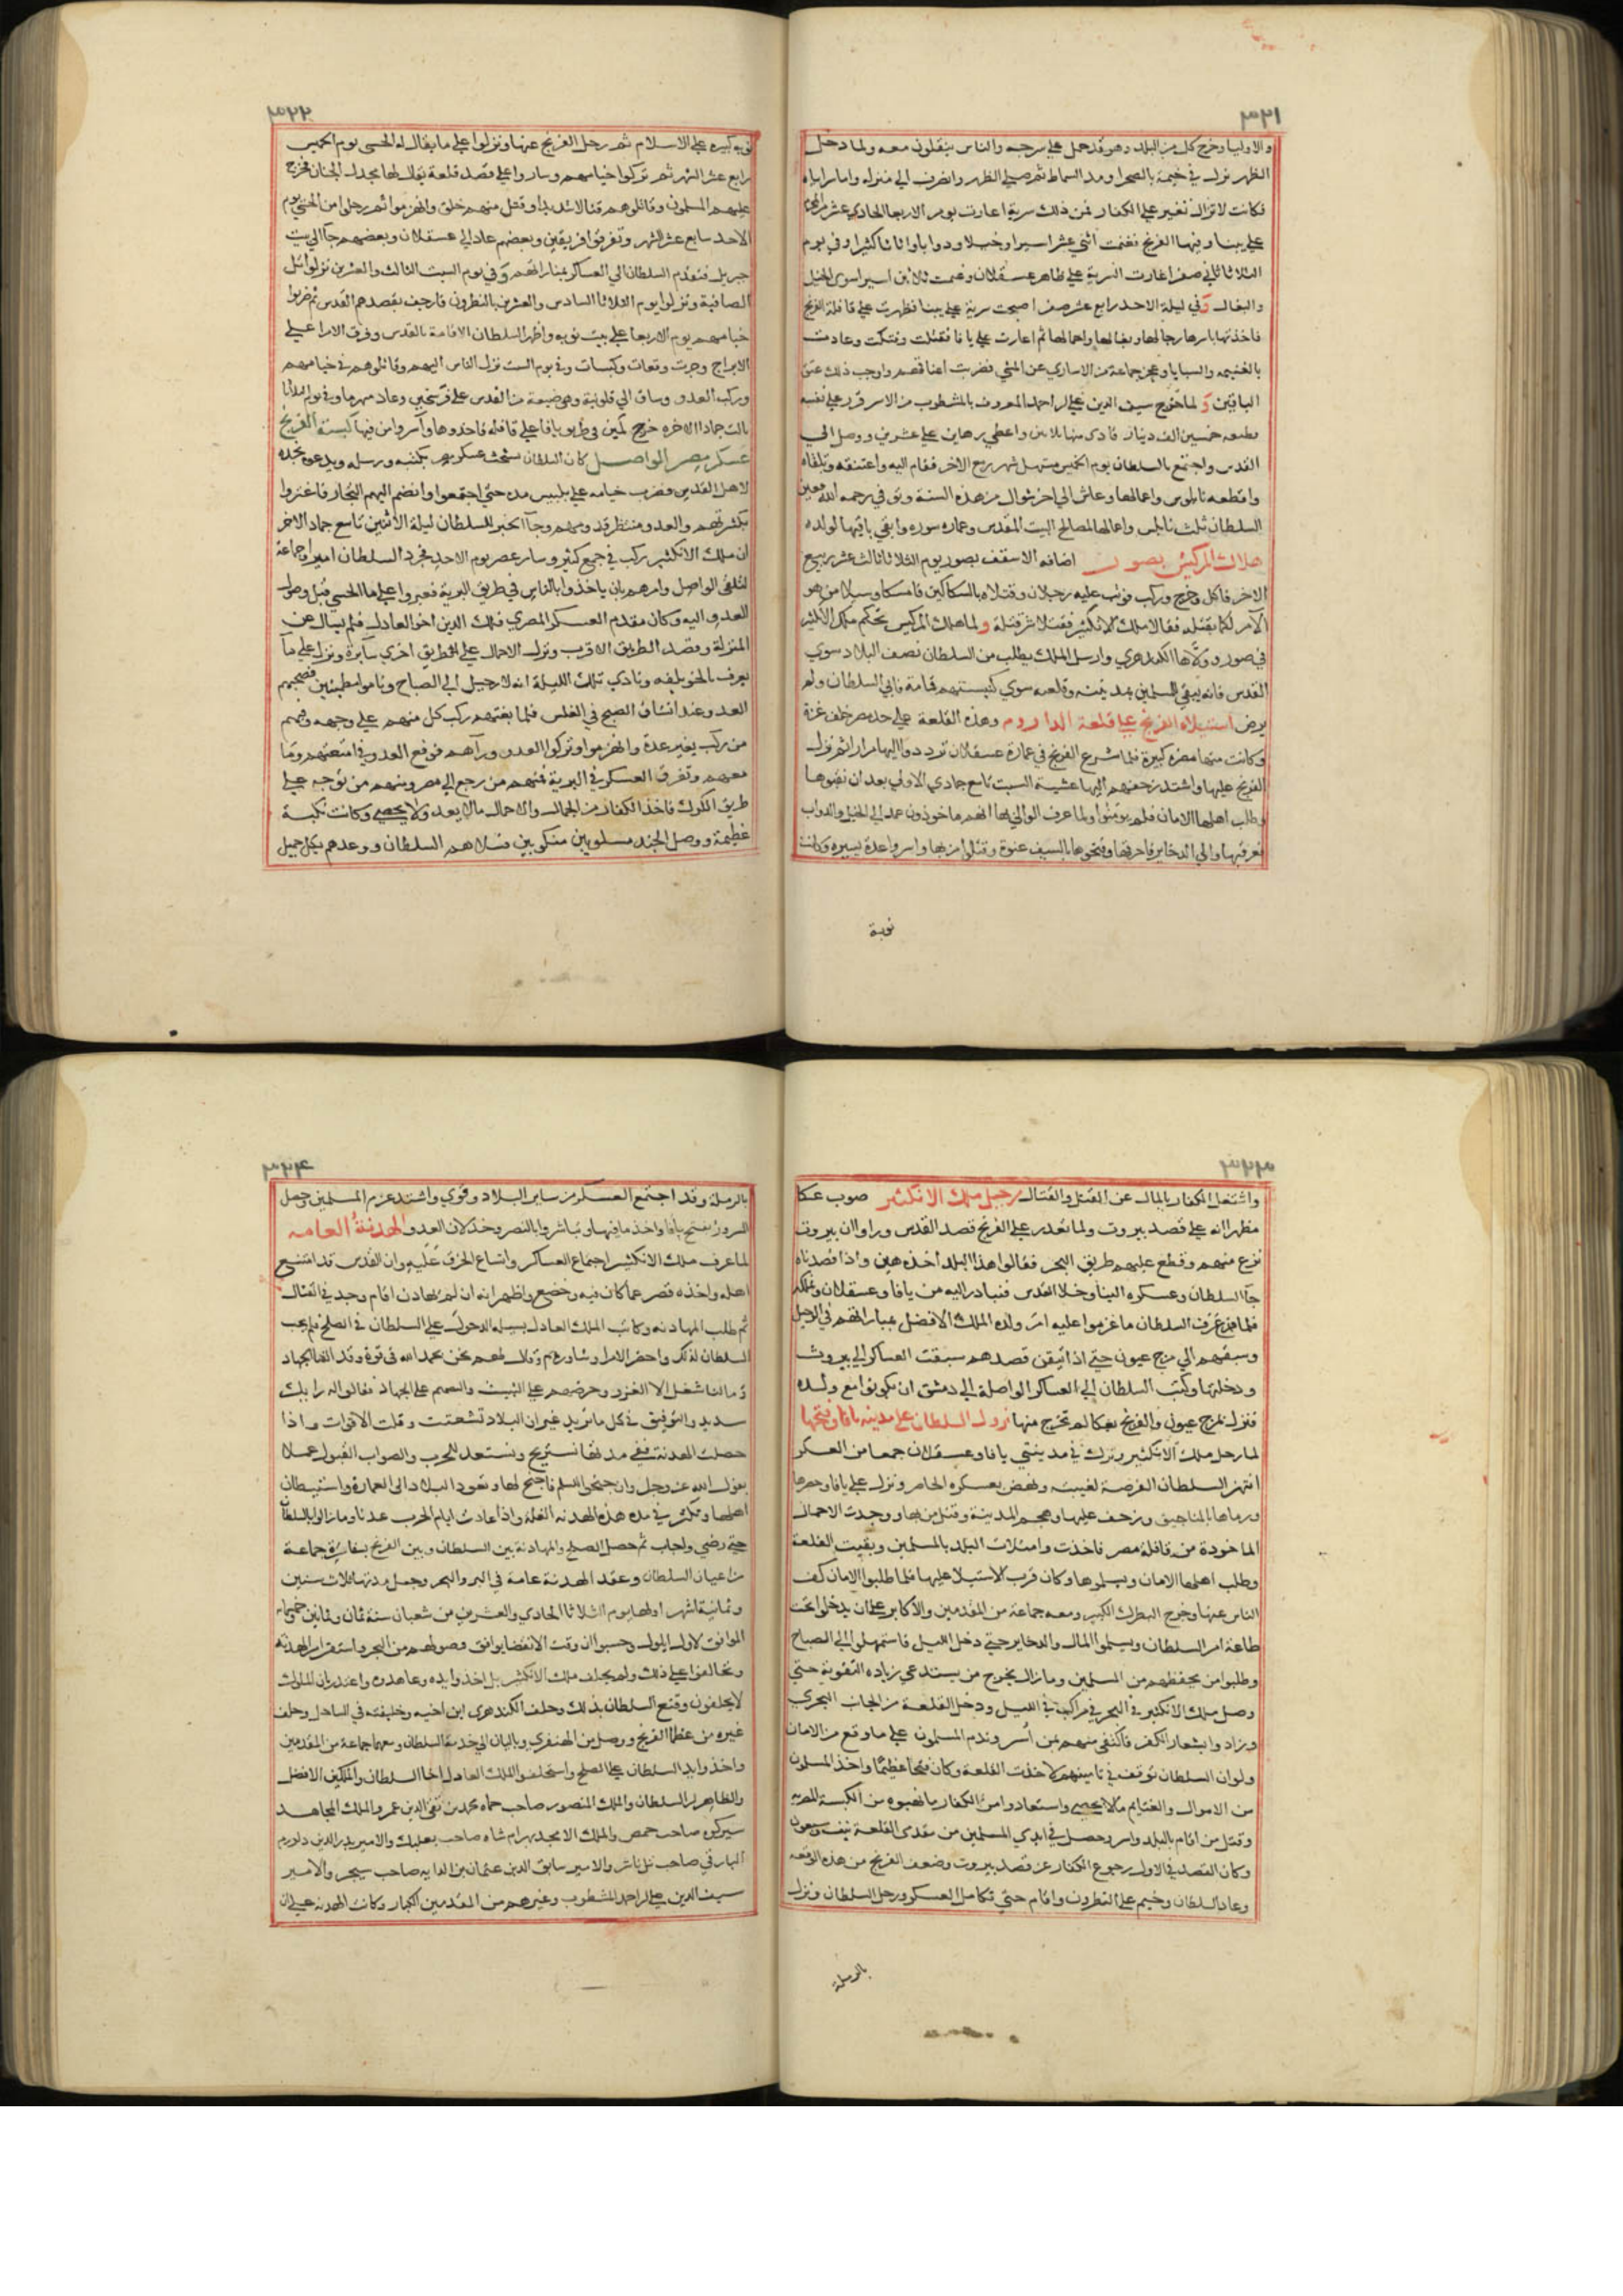 ٣٢١
والاوليا وخرج كل من البلد وهو قد حمل على سرجه والناس ينقلون معه ولما دخل
الظهر نزل في خيمة بالصحرا ومد السماط ثم صلى الظهر وانصرف الى منزله واما سراياه
فكانت لا تزال تغير على الكفار فمن ذلك سرية اغارت يوم الاربعا الحادي عشر من
على يبنا وفيها الفرنج فغنمت اثني عشر اسيرا وخيلا ودوابا واثاثا كثيرا وفي يوم
الثلاثا ثاني صفر اغارت السرية على ظاهر عسقلان وغنمت ثلاثين اسيرا سوى الخيل
والبغال وفي ليلة الاحد رابع عشر صفر اصبحت سرية على يبنا فظهرت على قافلة الفرنج
فاخذتها باسرها رجالها وبغالها واحمالها ثم اغارت على يافا فقتلت وفتكت وعادت
بالغنيمه والسبايا وعجز جماعة من الاسارى عن المشي فضربت اعناقهم واوجب ذلك عتق
الباقين ولما خرج سيف الدين علي بن احمد المعروف بالمشطوب من الاسر قرر على نفسه
قطيعه خمسين الف دينار فادى منها ثلاثين واعطى رهاين على عشرين ووصل الى
القدس واجتمع بالسلطان يوم الخميس مستهل شهر ربيع الاخر فقام اليه واعتنقه وتلقاه
واقطعه نابلوس واعمالها وعاش الى اخر شوال من هذه السنة وتوفي رحمه الله فعين
السلطان ثلث نابلس واعمالها لمصالح البيت المقدس وعمارة سوره وابقى باقيها لولده
هلاك المركيس بصور اضافه الاسقف بصور يوم الثلاثا ثالث عشر ربيع
الاخر فاكل وخرج وركب فوثب عليه رجلان وقتلاه بالسكاكين فامسكا وسيلا من هو
الآمر لكما بقتله فقالا ملك الانكتير فقتلا شر قتلة ولما هلك المركيس تحكم ملك الانكتير
في صور وولاها الكندهري وارسل الملك يطلب من السلطان نصف البلاد سوى
القدس فانه يبقى للمسلمين بمدينته وقلعته سوى كنيستهم قمامة فابى السلطان ولم
يرض استيلاء الفرنج على قلعة الداروم وهذه القلعة على حد مصر خلف غزة
وكانت منها مضرة كبيرة فلما شرع الفرنج في عمارة عسقلان ترددوا اليها مرارا ثم نزل
الفرنج عليها واشتد زحفهم اليها عشية السبت تاسع جمادى الاولى بعد ان نقبوها
وطلب اهلها الامان فلم يؤمنوا ولما عرف الوالي بها انهم ماخوذون عمد الى الخيل والدواب
فعرقبها والى الدخاير فاحرقها وفتحوها بالسيف عنوة وقتلوا من بها واسروا عدة يسيره وكانت
نوبة
٣٢٢
نوبه كبيرة على الاسلام ثم رحل الفرنج عنها ونزلوا على ما يقال له الحسى يوم الخميس
رابع عشر الشهر ثم تركوا خيامهم وساروا على قصد قلعة يقال لها مجدل الجنان فخرج
عليهم المسلمون وقاتلوهم قتالا شديدا وقتل منهم خلق وانهزموا ثم رحلوا من الحسى يوم
الاحد سابع عشر الشهر وتفرقوا فريقين وبعضهم عاد الى عسقلان وبعضهم جآ الى بيت
جبريل فتقدم السلطان الى العساكر بمبارزتهم وفي يوم السبت الثالث والعشرين نزلوا تل
الصافية ونزلوا يوم الثلاثا السادس والعشرين بالنطرون فارجف بقصدهم القدس ثم ضربوا
خيامهم يوم الاربعا على بيت نوبه واظهر السلطان الاقامة بالقدس وفرق الامرا على
الابراج وجرت وقعات وكبسات وفي يوم السبت نزل الناس اليهم وقاتلوهم في خيامهم
وركب العدو وساق الى قلونية وهي ضيعة من القدس على فرسخين وعاد منهزما وفي يوم الثلاثا
ثالث جمادا الاخره خرج كمين في طريق يافا على قافلة فاخذوها واسروا من فيها كبسة الفرنج
عسكر مصر الواصل كان السلطان يستحث عسكر مصر بكتبه ورسله ويدعوه نجدة
لاهل القدس فضرب خيامه على بلبيس مدة حتى اجتمعوا وانضم اليهم التجار فاغتروا
بكثرتهم والعدو منتظر قدومهم وجآ الخبر للسلطان ليلة الاثنين تاسع جماد الاخر
ان ملك الانكتير ركب في جمع كثير وسار عصر يوم الاحد فجرد السلطان اميرا وجماعة
لتلقي الواصل وامرهم بان ياخذوا بالناس في طريق البرية فعبروا على ما الحسي قبل وصول
العدو اليه وكان مقدم العسكر المصري فلك الدين اخو العادل فلم يسال عن
المنزلة وقصد الطريق الاقرب ونزل الاحمال على طريق اخرى سايرة ونزل على مآ
يعرف بالخويلفه ونادى تلك الليلة انه لا رحيل الى الصباح وناموا مطمئنين فصبحهم
العدو عند انشقاق الصبح في الغلس فلما بغتهم ركب كل منهم على وجهه ومنهم
من ركب بغير عدة وانهزموا وتركوا العدو ورآهم فوقع العدو في امتعتهم وما
معهم وتفرق العسكر في البرية فمنهم من رجع الى مصر ومنهم من توجه على
طريق الكرك فاخذ الكفار من الجمال والاحمال ما لا يعد ولا يحصى وكانت نكبة
عظيمة ووصل الجند مسلوبين منكوبين فسلاهم السلطان ووعدهم بكل جميل
٣٢٣
واشتغل الكفار بالمال عن القتل والقتال رحيل ملك الانكتير صوب عكا
مظهرا انه على قصد بيروت ولما تعذر على الفرنج قصد القدس وراوا ان بيروت
تزع منهم وقطع عليهم طريق البحر فقالوا هذا البلد اخذه هين واذا قصدناه
جآ السلطان وعسكره الينا وخلا القدس فنبادر اليه من يافا وعسقلان ونملكه
فلما عرف السلطان ما عزموا عليه امر ولده الملك الافضل بمباراتهم في الرحيل
وسبقهم الى مرج عيون حتى اذا تيقن قصدهم سبقت العساكر الى بيروت
ودخلتها وكتب السلطان الى العساكر الواصلة الى دمشق ان يكونوا مع ولده
فنزل بمرج عيون والفرنج بعكا لم تخرج منها نزول السلطان على مدينة يافا وفتحها
لما رحل ملك الانكتير وترك في مدينتي يافا وعسقلان جمعا من العسكر
انتهز السلطان الفرصة لغيبته ونهض بعسكره الحاضر ونزل على يافا وحصرها
ورماها بالمناجيق وزحف عليها وهجم المدينة وقتل من بها ووجدت الاحمال
الماخوذة من قافلة مصر فاخذت وامتلات البلد بالمسلمين وبقيت القلعة
وطلب اهلها الامان ويسلموها وكان قرب الاستيلا عليها فلما طلبوا الامان كف
الناس عنها وخرج البطرك الكبير ومعه جماعة من المقدمين والاكابر على ان يدخلوا تحت
طاعة امر السلطان ويسلموا المال والدخاير حتى دخل الليل فاستمهلوا الى الصباح
وطلبوا من يحفظهم من المسلمين وما زال يخرج من يستدعي زيادة التقوية حتى
وصل ملك الانكتير في البحر في مراكب في الليل ودخل القلعة من الجانب البحري
وزادوا بشعار الكفر فاكتفى منهم بمن اسر وندم المسلمون على ما وقع من الامان
ولو ان السلطان توقف في تامينهم لاخذت القلعة وكان فتحا عظيما واخذ المسلمون
من الاموال والغنايم ما لا يحصى واستعادوا من الكفار ما نهبوه من الكبسة المصريه
وقتل من اقام بالبلد واسر وحصل في ايدي المسلمين من مقدمي القلعة نيف وسبعون
وكان القصد في الاول رجوع الكفار عن قصد بيروت وضعف الفرنج من هذه الوقعه
وعاد السلطان وخيم على النطرون واقام حتى تكامل العسكر ورحل السلطان ونزل
بالرملة
٣٢٤
بالرملة وقد اجتمع العسكر من ساير البلاد وقوي واشتد عزم المسلمين وحصل
السرور بفتح يافا واخذ ما فيها وتباشروا بالنصر وخذلان العدو الهدنة العامه
لما عرف ملك الانكتير اجتماع العساكر واتساع الخرق عليه وان القدس قد امتنع
اهله واخذه قصر عما كان فيه وخضع واظهر انه ان لم يهادن اقام وجد في القتال
ثم طلب المهادنه وكاتب الملك العادل يسيله الدخول على السلطان في الصلح فلم يجب
السلطان لذلك واحضر الامرا وشاورهم وقال لهم نحن بحمد الله في قوة وقد الفنا الجهاد
وما لنا شغل الا الغزو وحرضهم على الثبت والتصميم على الجهاد فقالوا له رايك
سديد والتوفيق في كل ما تريد غير ان البلاد تشعثت وقلت الاقوات واذا
حصلت الهدنة ففي مدتها نستريح ونستعد للحرب والصواب القبول عملا
بقول الله عز وجل وان جنحوا للسلم فاجنح لها وتعود البلاد الى العمارة واستيطان
اهلها وتكثر في مدة هذه الهدنه الغله واذا عادت ايام الحرب عدنا وما زالوا بالسلطان
حتى رضي واجاب ثم حصل الصلح والمهادنة بين السلطان وبين الفرنج بسفارة جماعة
من اعيان السلطان وعقد الهدنة عامة في البر والبحر وجعل مدتها ثلاث سنين
وثمانية اشهر اولها يوم الثلاثا الحادي والعشرين من شعبان سنة ثمان وثمانين وخمسمايه
الموافق لاول ايلول وحسبوا ان وقت الانقضا يوافق وصولهم من البحر واستقرار الهدنة
وتحالفوا على ذلك ولم يحلف ملك الانكتير بل اخذوا يده وعاهدوه واعتذر بان الملوك
لا يحلفون وقنع السلطان بذلك وحلف الكندهري ابن اخيه وخليفته في الساحل وحلف
غيره من عظما الفرنج ووصل بن الهنفري وباليان الى خدمة السلطان ومعهما جماعة من المقدمين
واخذوا يد السلطان على الصلح واستحلفوا الملك العادل اخا السلطان والملكين الافضل
والظاهر ابنا السلطان والملك المنصور صاحب حماه محمد بن تقي الدين عمر والملك المجاهد
شيركوه صاحب حمص والملك الامجد بهرام شاه صاحب بعلبك والامير بدر الدين دلدرم
الياروقي صاحب تل باشر والامير سابق الدين عثمان بن الدايه صاحب شيزر والامير
سيف الدين علي بن احمد المشطوب وغيرهم من المقدمين الكبار وكانت الهدنه على ان